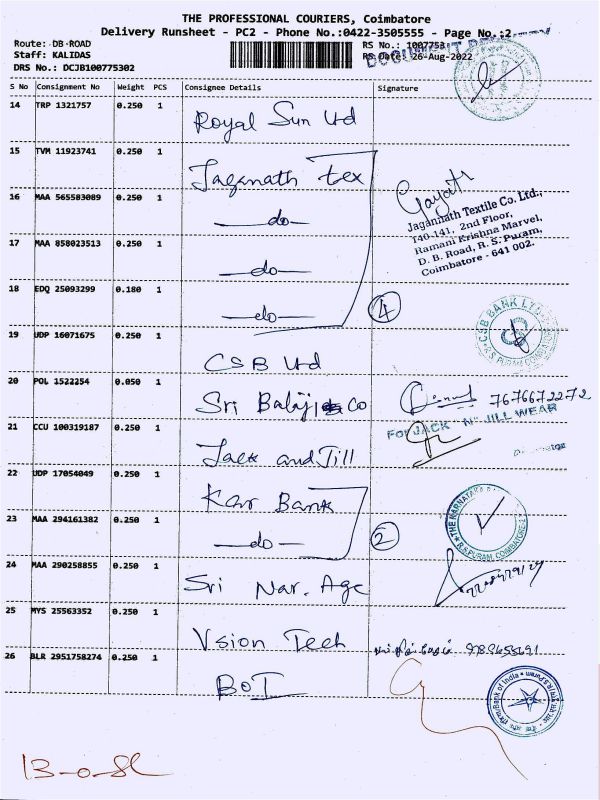 THE PROFESSIONAL COURIERS, Coimbatore
Delivery Runsheet - PC2 - Phone No.:0422-3505555 - Page No.:2
Route: DB-ROAD
Staff: KALIDAS
DRS No.: DCJB100775302
RS No.: 1007753
RS Date: 26-Aug-2022
S No Consignment No Weight PCS Consignee Details Signature
14 TRP 1321757 0.250 1 Royal Sun Ltd
15 TVM 11923741 0.250 1 Jaganath tex
16 MAA 565583089 0.250 1 —do—
17 MAA 858023513 0.250 1 —do—
18 EDQ 25093299 0.180 1 —do—
4
Gayatri
Jagannath Textile Co. Ltd.,
T40-141, 2nd Floor,
Ramani Krishna Marvel,
D. B. Road, R. S. Puram,
Coimbatore - 641 002.
19 UDP 16071675 0.250 1 CSB Ltd
CSB BANK LTD
R.S. PURAM, COIMBATORE
20 POL 1522254 0.050 1 Sri Balaji Co
7676672272
21 CCU 100319187 0.250 1 Jack and Jill
For JACK 'N' JILL WEAR
22 UDP 17054049 0.250 1 Kar Bank
23 MAA 294161382 0.250 1 —do—
2
THE KARNATAKA
R.S.PURAM, COIMBATORE-2
24 MAA 290258855 0.250 1 Sri Nar. Age
25 MYS 25563352 0.250 1 Vsion Tech
26 BLR 2951758274 0.250 1 BOI
Bank of India